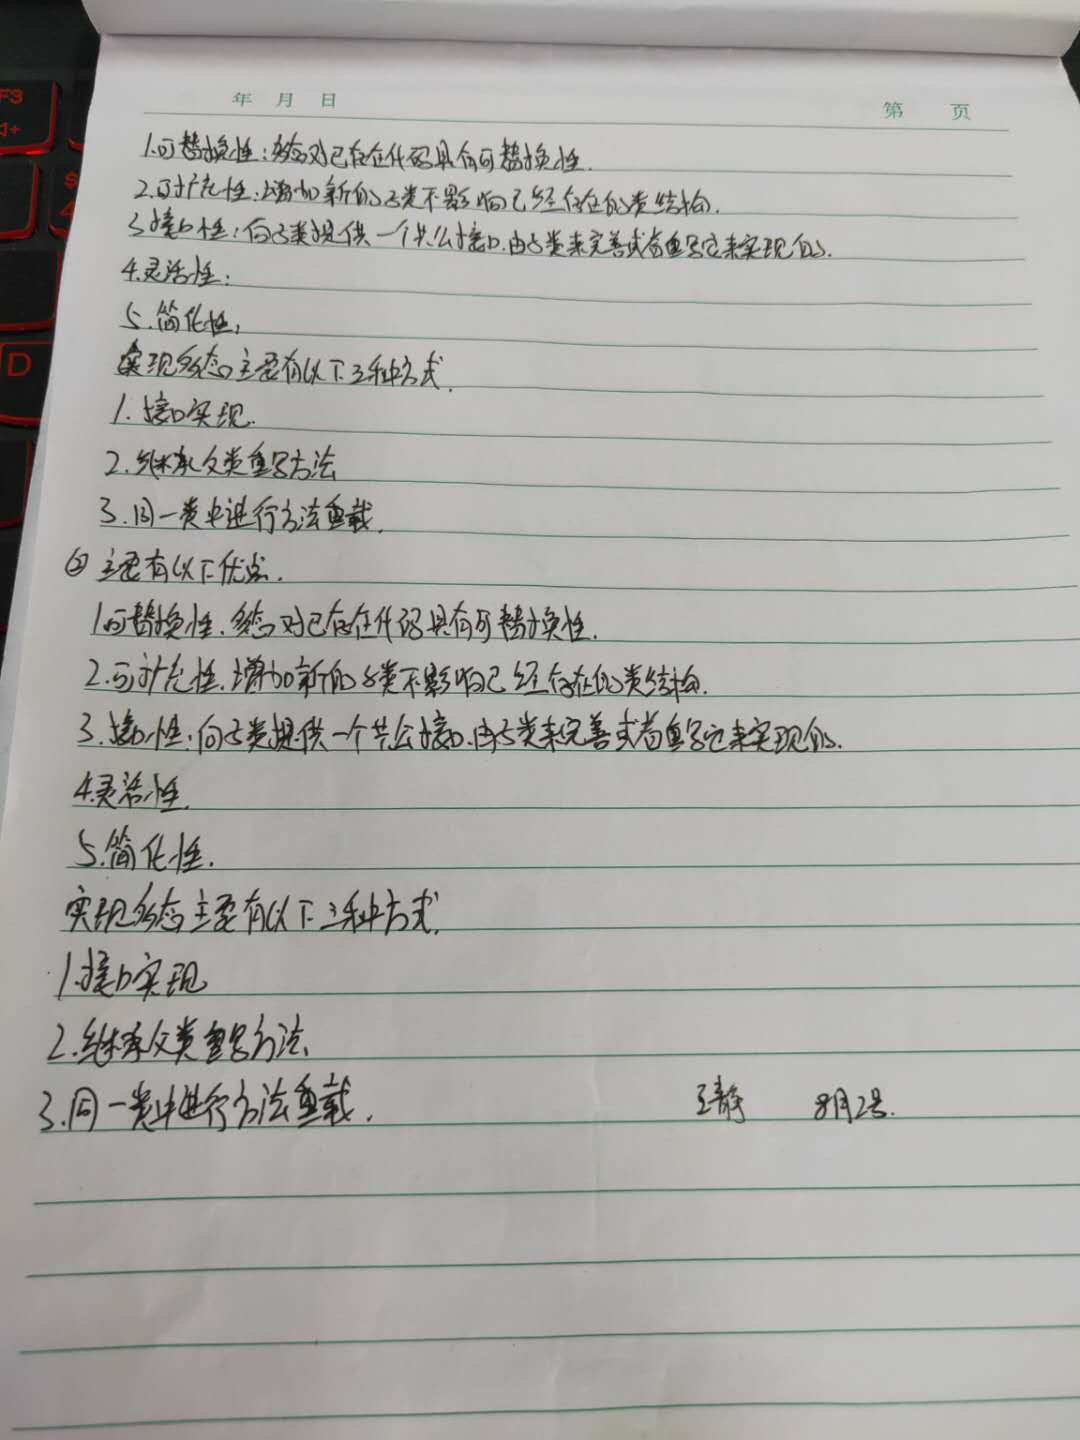 年 月 日
第 页
1.可替换性:多态对已存在代码具有可替换性.
2.可扩充性.增加新的子类不影响已经存在的类结构.
3.接口性:向子类提供一个共公接口.由子类来完善或者重写它来实现的.
4.灵活性:
5.简化性,
实现多态主要有以下三种方式.
1.接口实现.
2.继承父类重写方法
3.同一类中进行方法重载.
② 主要有以下优点.
1.可替换性.多态对已存在代码具有可替换性.
2.可扩充性.增加新的子类不影响已经存在的类结构.
3.接口性.向子类提供一个共公接口.由子类来完善或者重写它来实现的.
4.灵活性.
5.简化性.
实现多态主要有以下三种方式.
1.接口实现
2.继承父类重写方法.
3.同一类中进行方法重载. 王静 8月2号.
F3
D